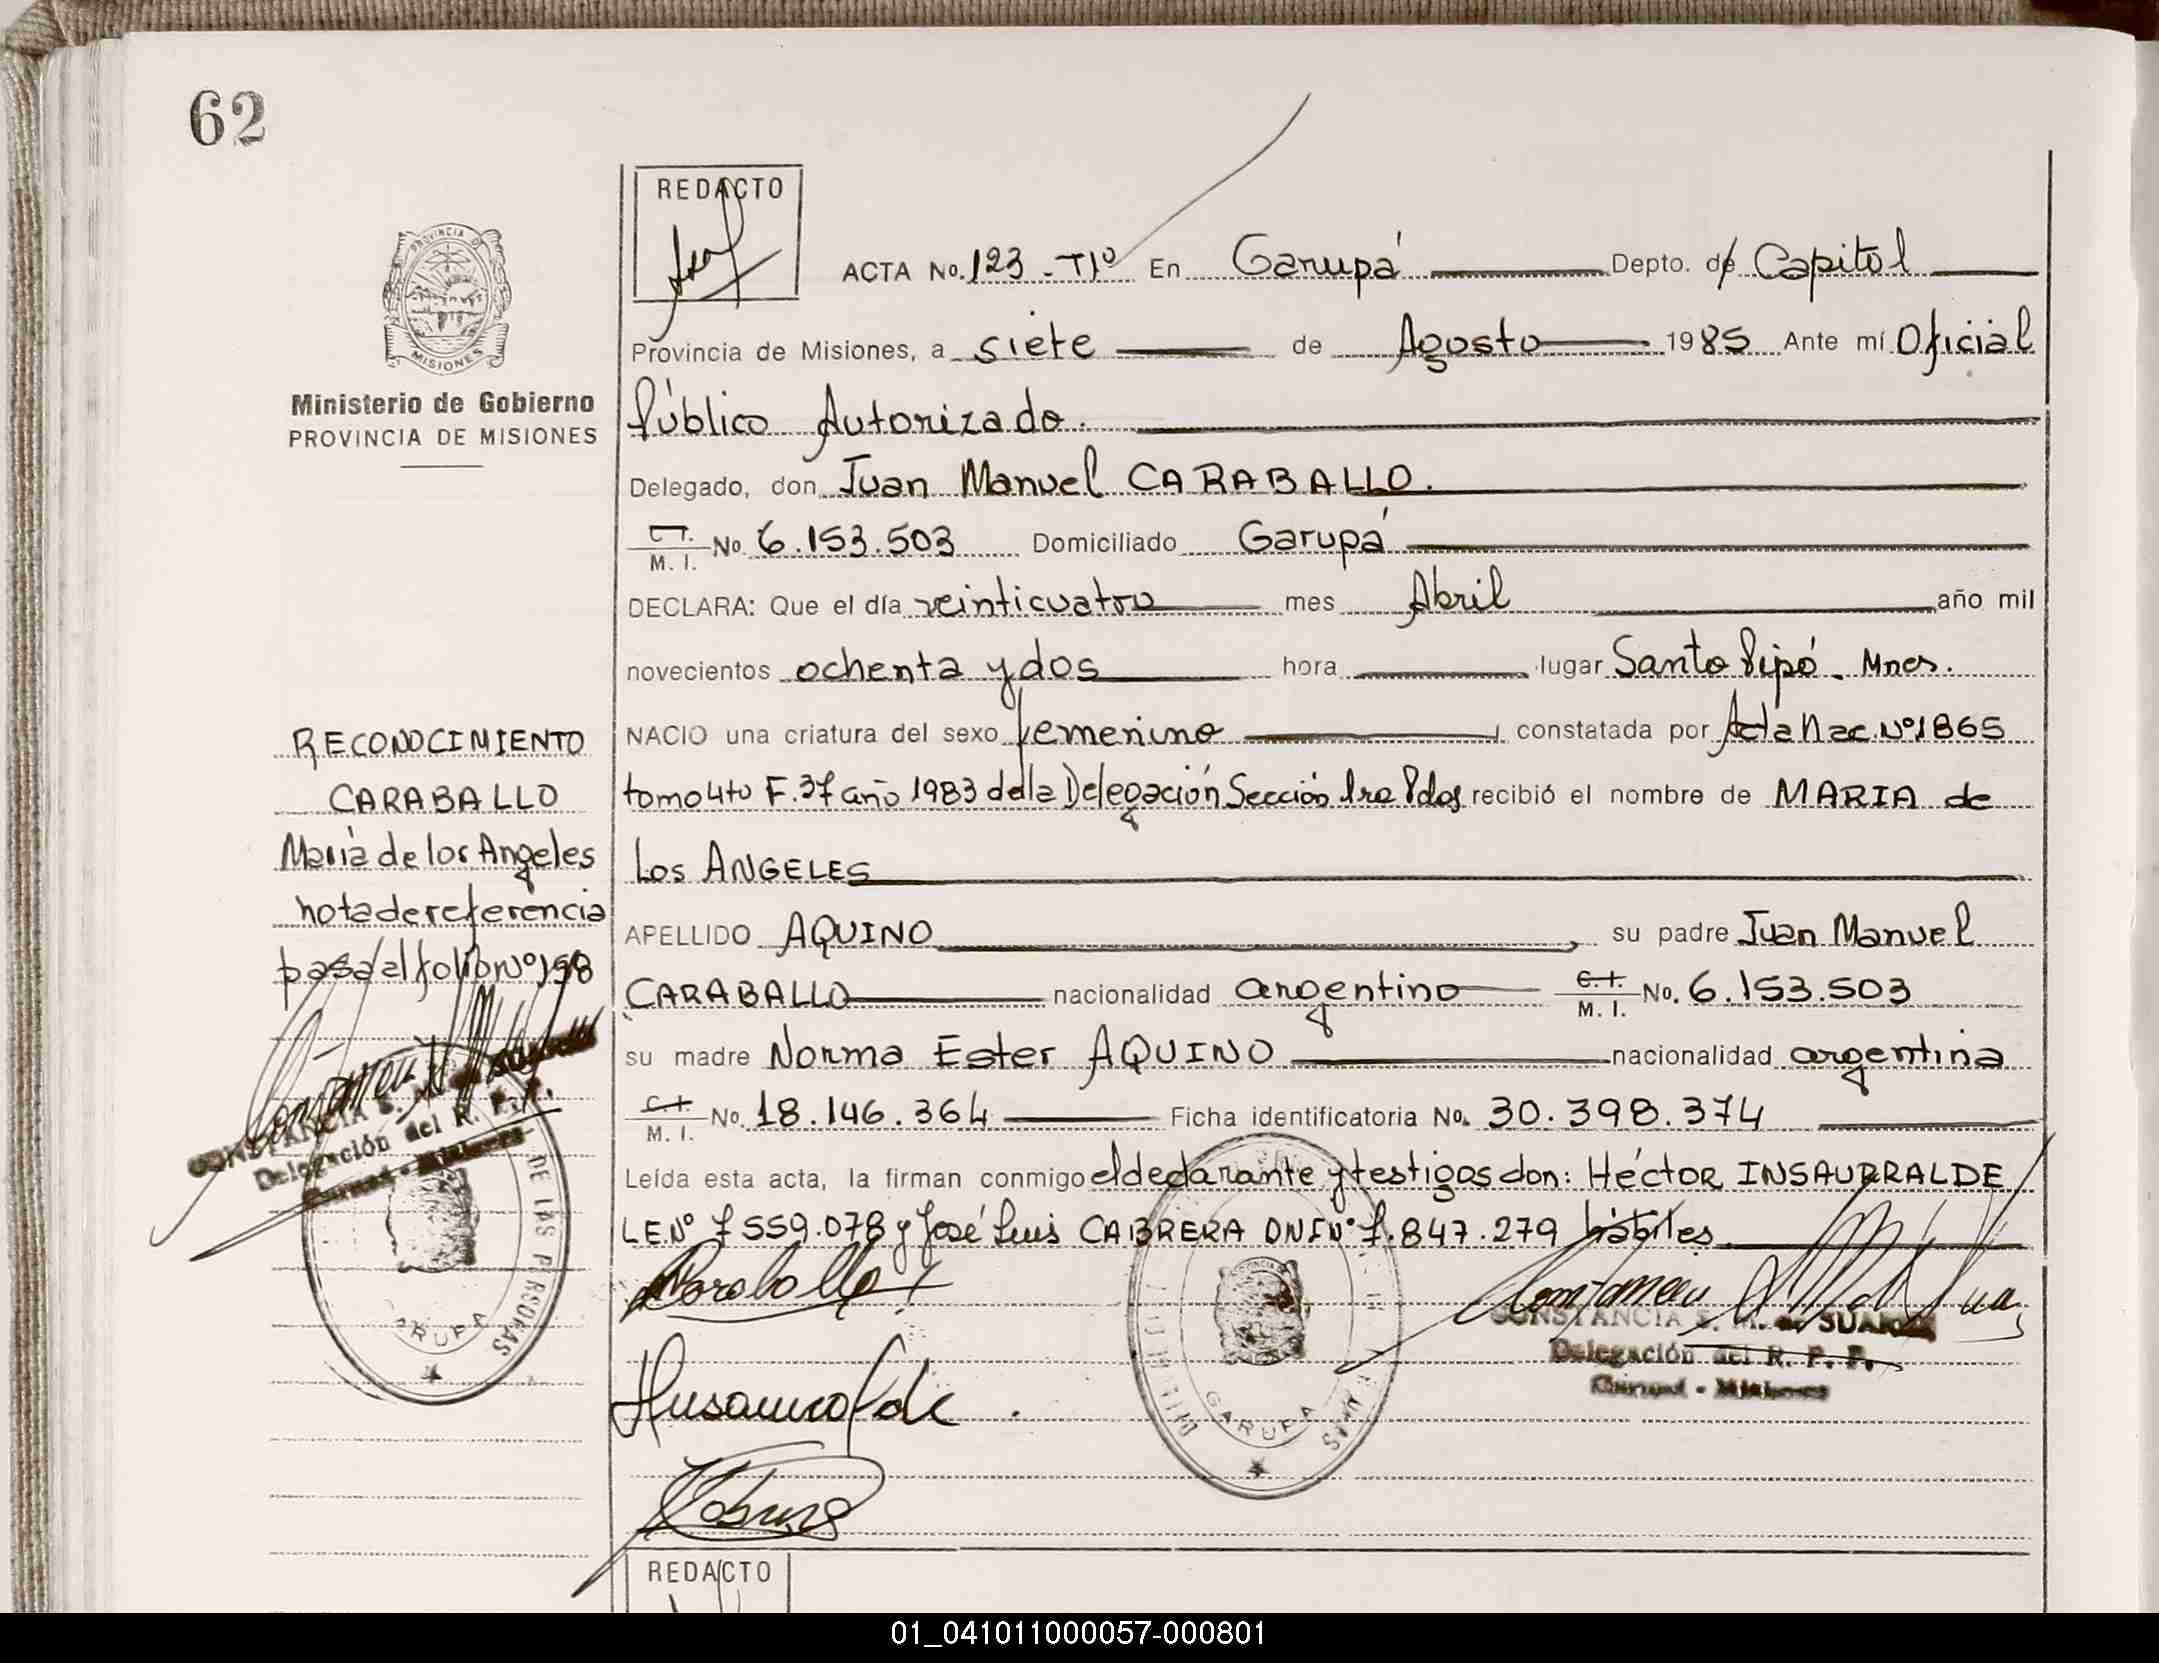 62
REDACTO
PROVINCIA DE
MISIONES
Ministerio de Gobierno
PROVINCIA DE MISIONES
ACTA No. 123 - Tº En Garupá Depto. de Capital
Provincia de Misiones, a siete de Agosto 1985 Ante mí Oficial
Público Autorizado.
Delegado, don Juan Manuel CARABALLO.
C.I. M. I. No. 6.153.503 Domiciliado Garupá
DECLARA: Que el día veinticuatro mes Abril año mil
novecientos ochenta y dos hora lugar Santo Pipó. Mnes.
NACIO una criatura del sexo femenino, constatada por Acta Nac. Nº 1865
tomo 4to F. 37 año 1983 de la Delegación Sección 1ra Pdas recibió el nombre de MARIA de
Los ANGELES
APELLIDO AQUINO, su padre Juan Manuel
CARABALLO nacionalidad argentino C.I. M. I. No. 6.153.503
su madre Norma Ester AQUINO nacionalidad argentina
C.I. M. I. No. 18.146.364 Ficha identificatoria No. 30.398.374
Leída esta acta, la firman conmigo el declarante y testigos don: Héctor INSAURRALDE
LE Nº 7.559.078 y José Luis CABRERA DNI Nº 7.847.279 hábiles.
RECONOCIMIENTO
CARABALLO
María de los Angeles
nota de referencia
pasa al folio Nº 198
CONSTANCIA S.
Delegación del R. P. P.
Garupá - Misiones
DE LAS PERSONAS
GARUPA
Caraballo
CONSTANCIA S. M. de SUAREZ
Delegación del R. P. P.
Garupá - Misiones
GARUPA
Insaurralde
Cabrera
REDACTO
01_041011000057-000801